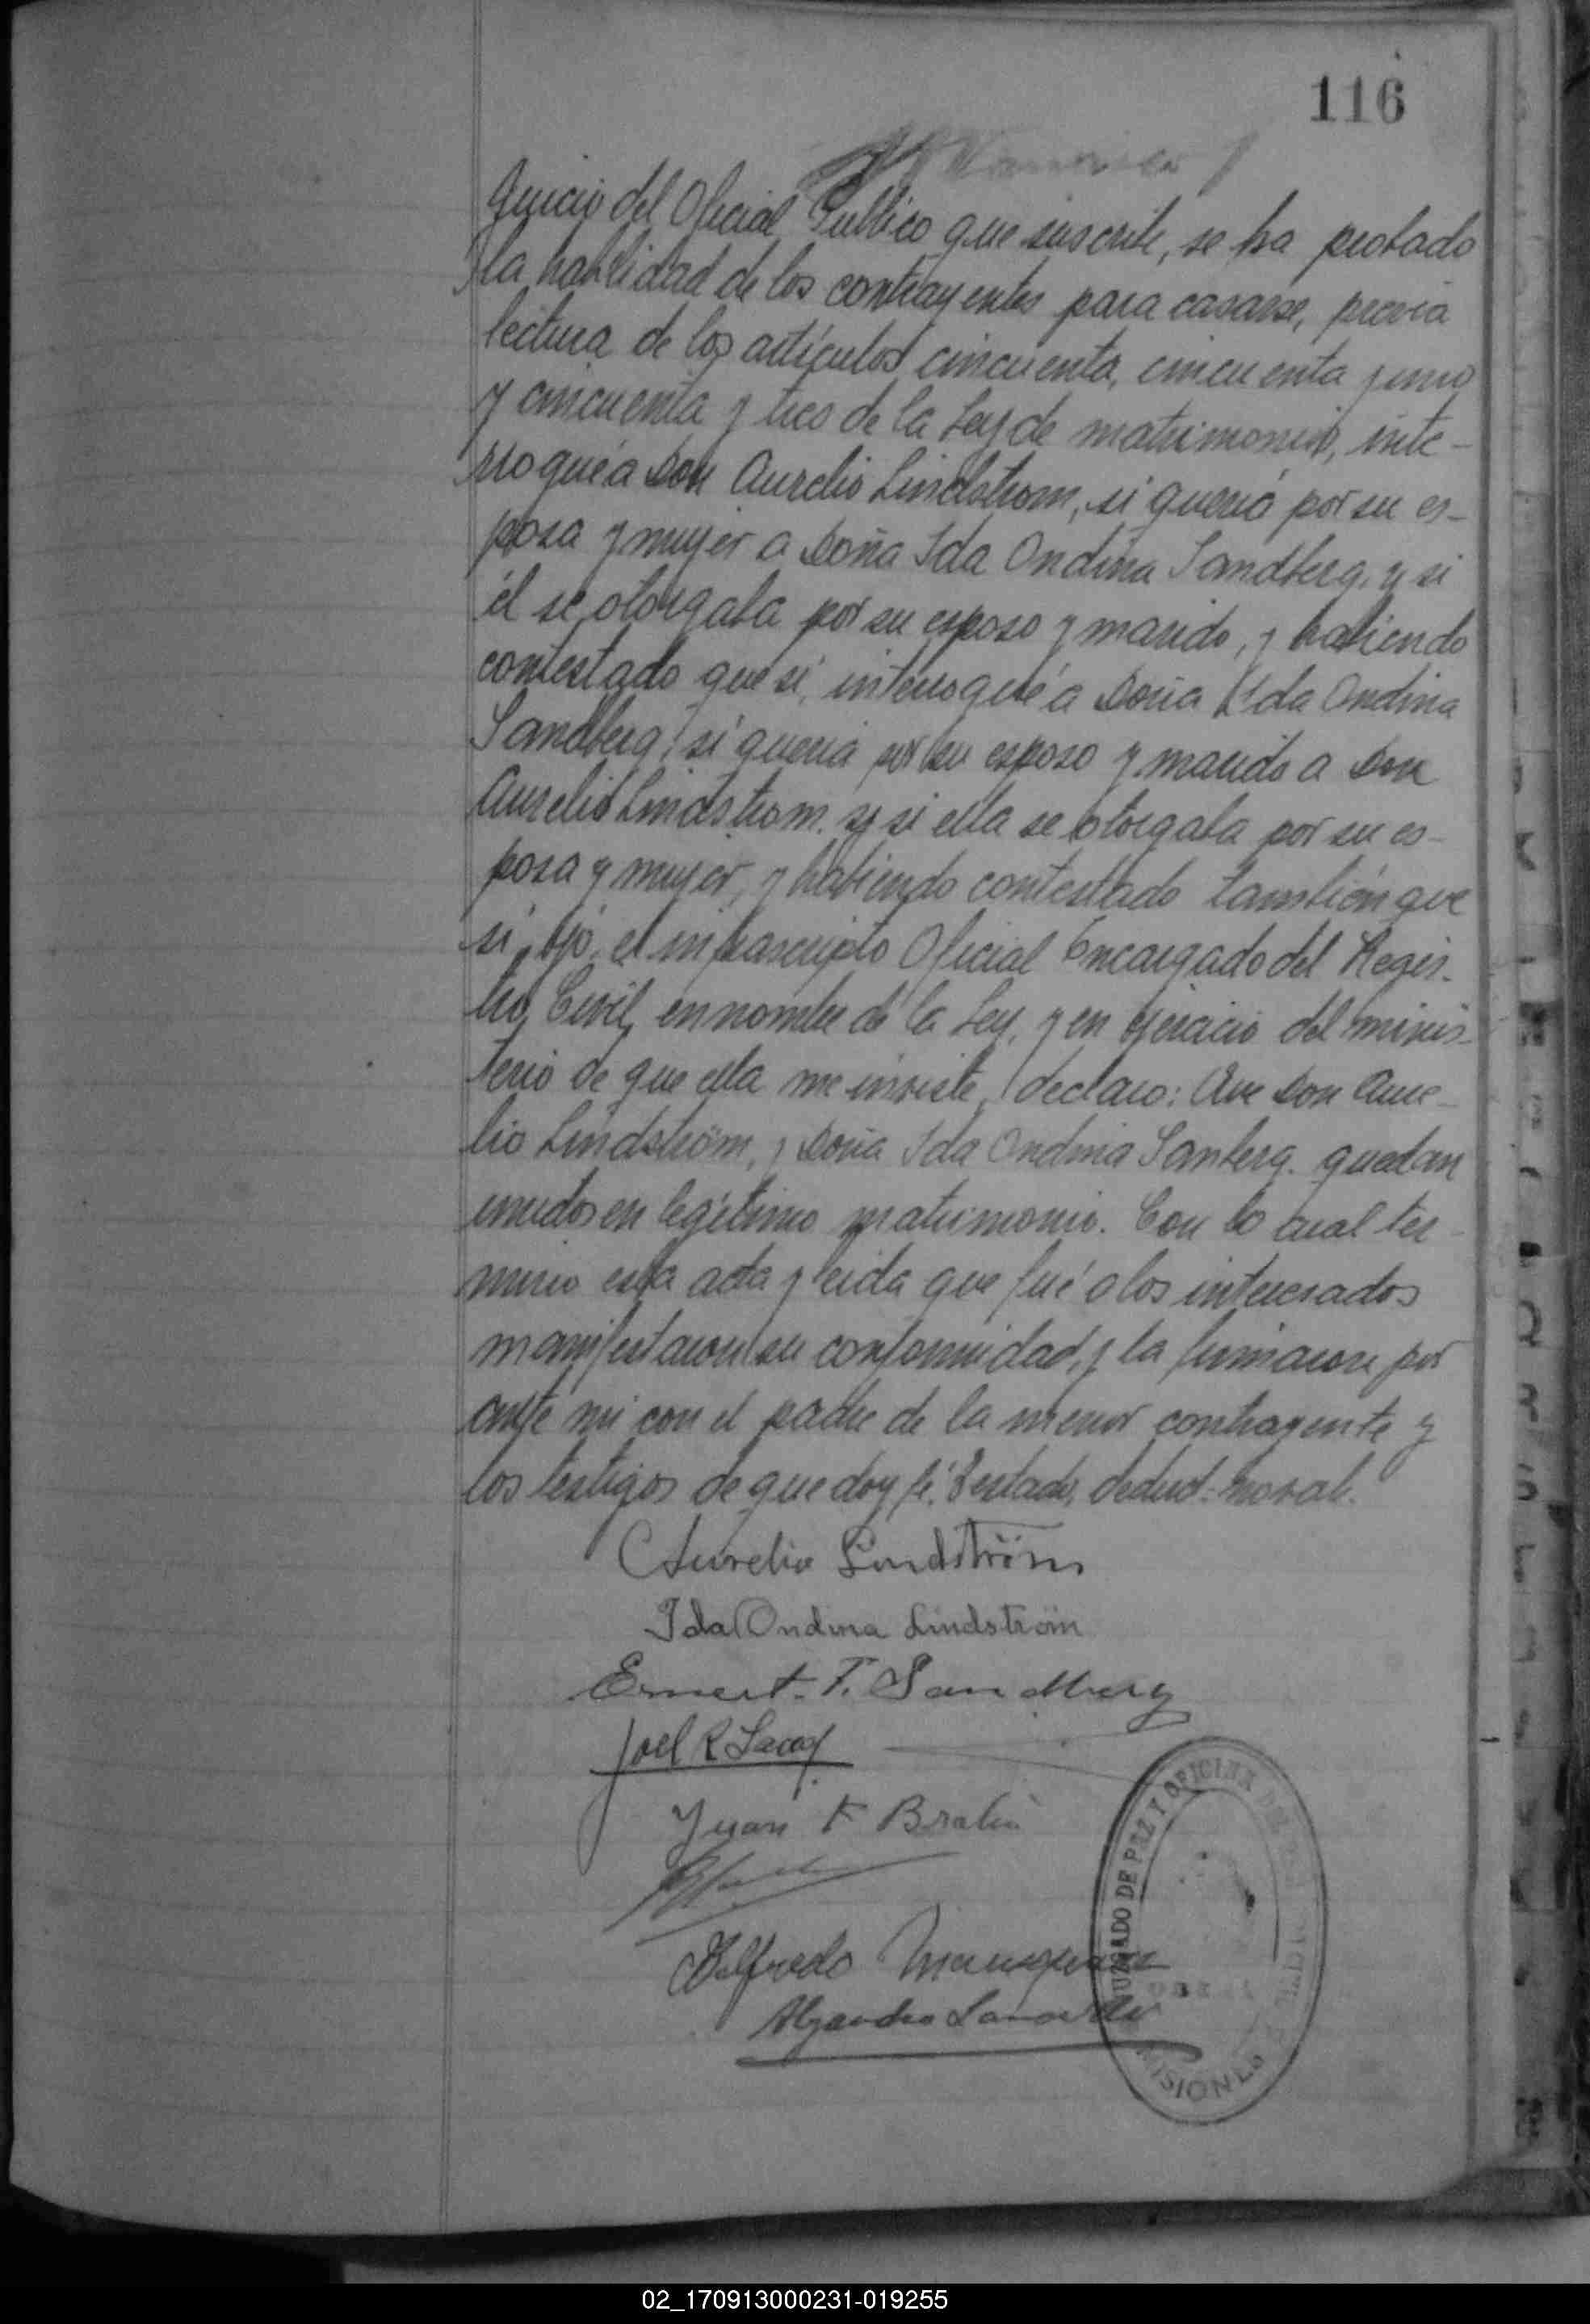 116
Juicio del Oficial Publico que suscribe, se ha probado
la habilidad de los contrayentes para casarse, previa
lectura de los artículos cincuenta, cincuenta y uno
y cincuenta y tres de la Ley de matrimonio, inte-
rrogué a Don Aurelio Lindstrom, si quería por su es-
posa y mujer a Doña Ida Ondina Sandberg, y si
él se otorgaba por su esposo y marido, y habiendo
contestado que sí, interrogué a Doña Ida Ondina
Sandberg, si quería por su esposo y marido a Don
Aurelio Lindstrom. y si ella se otorgaba por su es-
posa y mujer, y habiendo contestado también que
sí, yo, el infrascripto Oficial Encargado del Regis-
tro Civil, en nombre de la Ley, y en ejercicio del minis-
terio de que ella me inviste, declaro: Que Don Aure-
lio Lindström, y Doña Ida Ondina Sanberg. quedan
unidos en legítimo matrimonio. Con lo cual ter-
mino esta acta y leida que fué a los interesados
manifestaron su conformidad, y la firmaron por
ante mi con el padre de la menor contrayente y
los testigos de que doy fé.
Aurelio Lindström
Ida Ondina Lindström
Ernest. T. Sandberg
Joel R
Juan F
Alfredo
Alejandro
JUZGADO DE PAZ Y OFICINA DEL
MISIONES
02_170913000231-019255